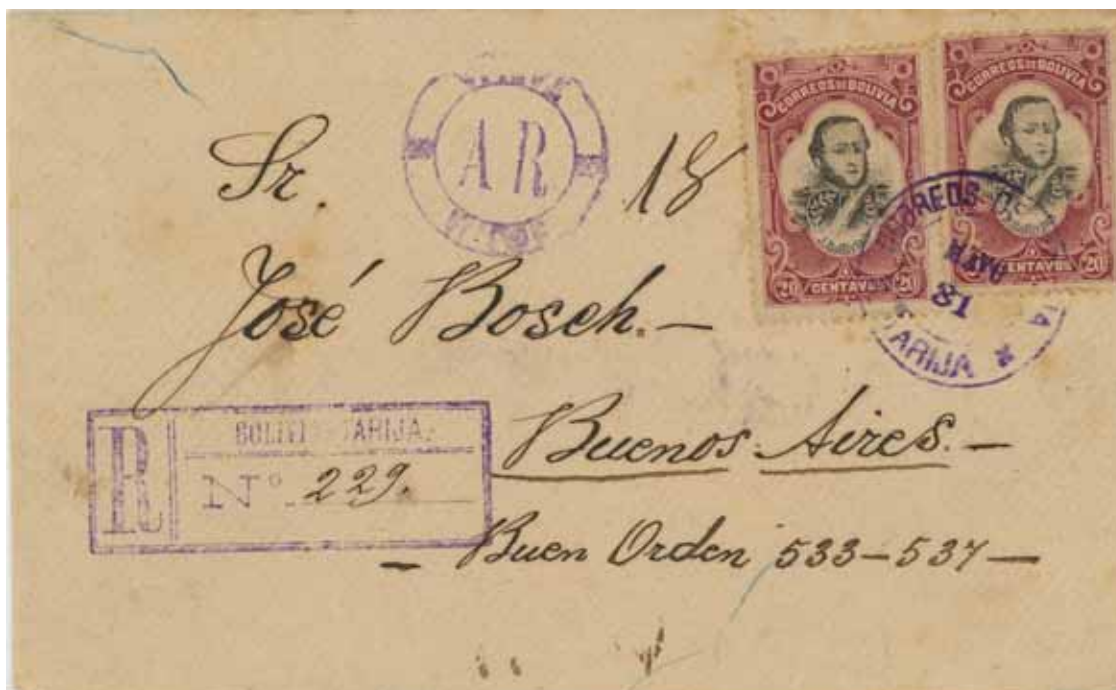 CORREOS DE BOLIVIA
CORREOS DE BOLIVIA
20 CENTAVOS 20
CENTAVOS 20
CORREOS
MAYO
TARIJA
A R
Sr. 18
José Bosch.—
R BOLIVIA TARIJA.
Nº 229.
Buenos Aires.—
— Buen Orden 533–537 —